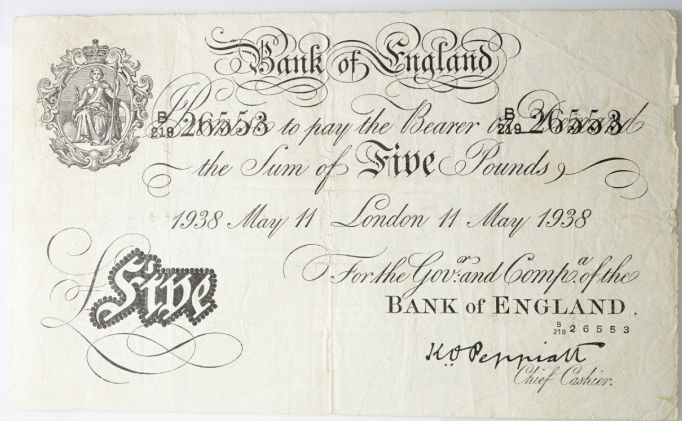 Bank of England
B/219 26553 I Promise to pay the Bearer on Demand B/219 26553
the Sum of Five Pounds
1938 May 11 London 11 May 1938
For the Govr. and Compa. of the
BANK of ENGLAND.
B/219 26553
£Five
K.O Peppiatt
Chief Cashier.